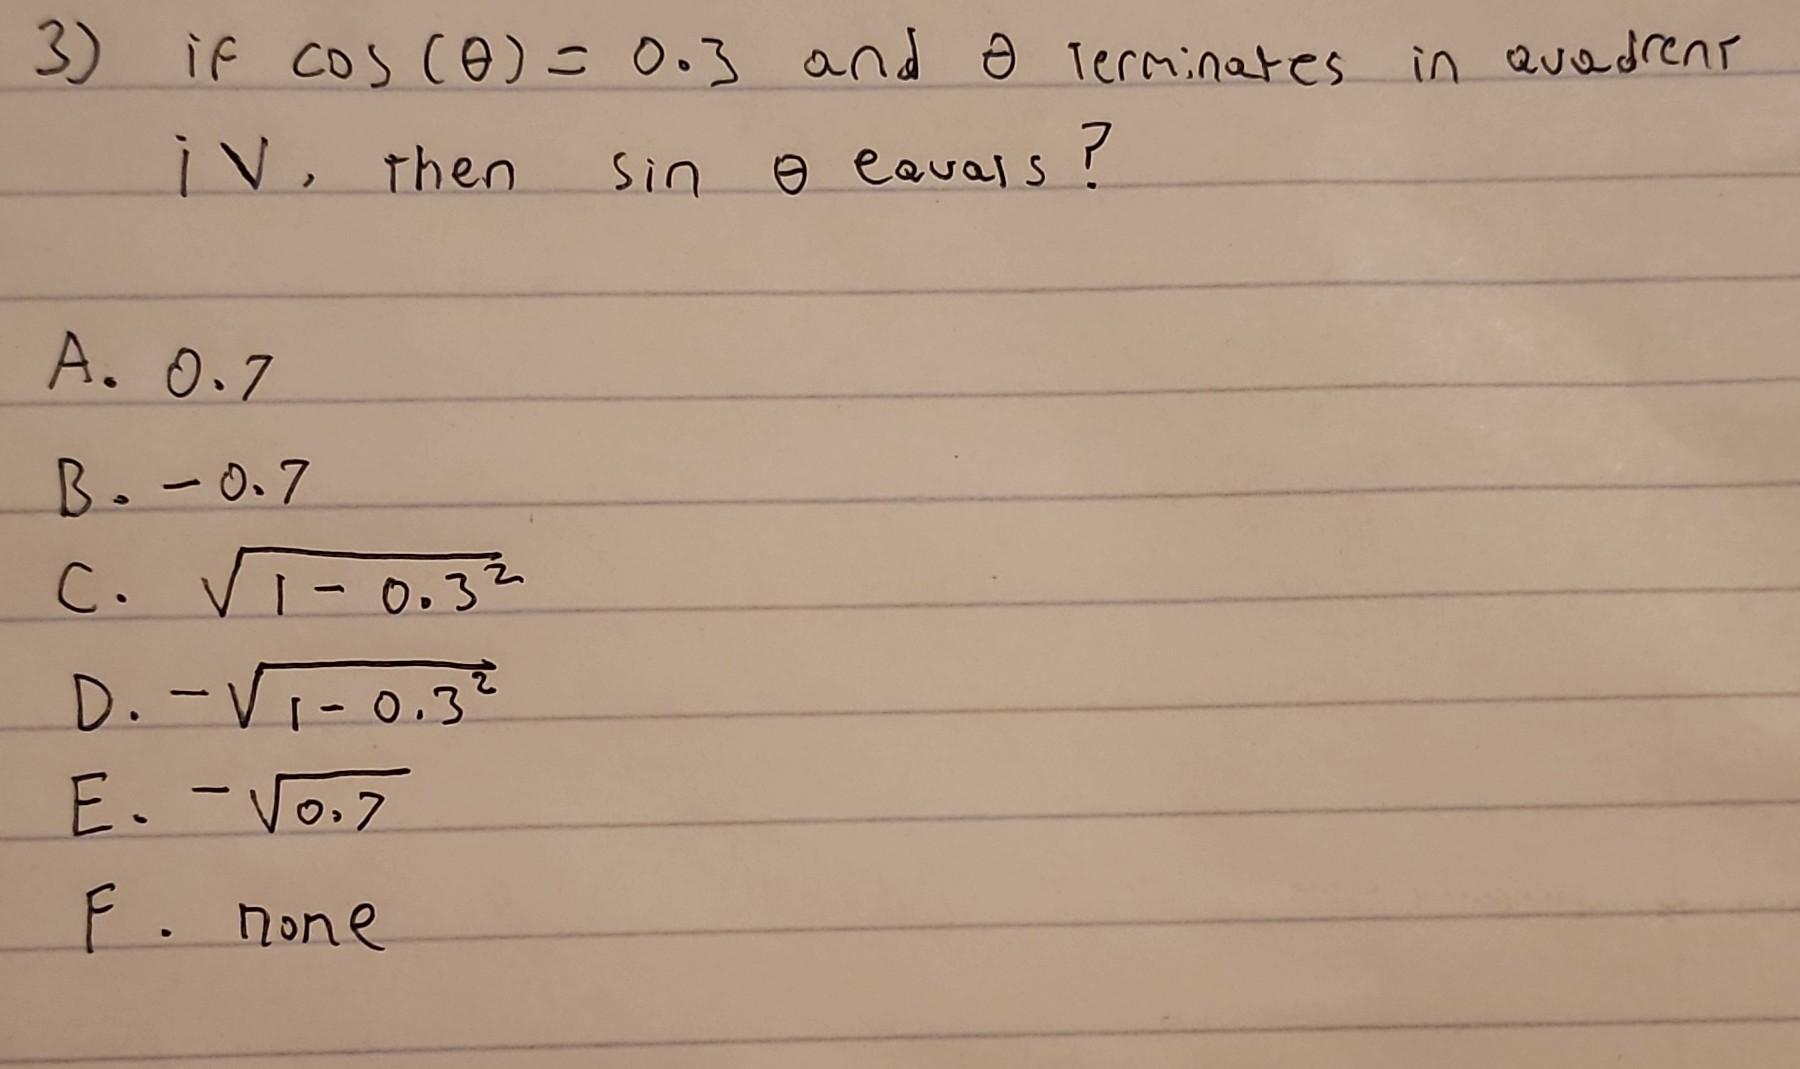 3) if cos (θ) = 0.3 and θ terminates in quadrent
iV, then sin θ equals?
A. 0.7
B. - 0.7
C. √(1 - 0.3²)
D. -√(1 - 0.3²)
E. -√0.7
F. none